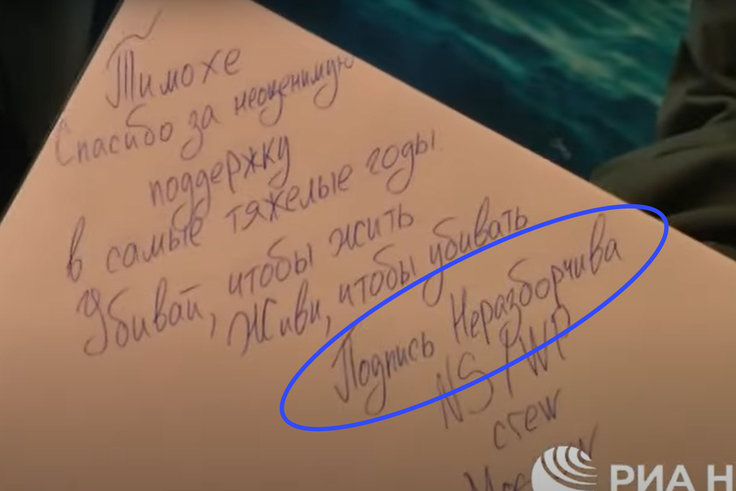 Тимохе
Спасибо за неоценимую
поддержку
в самые тяжелые годы
Убивай, чтобы жить
Живи, чтобы убивать
Подпись Неразборчива
NS/WP
crew
РИА Н